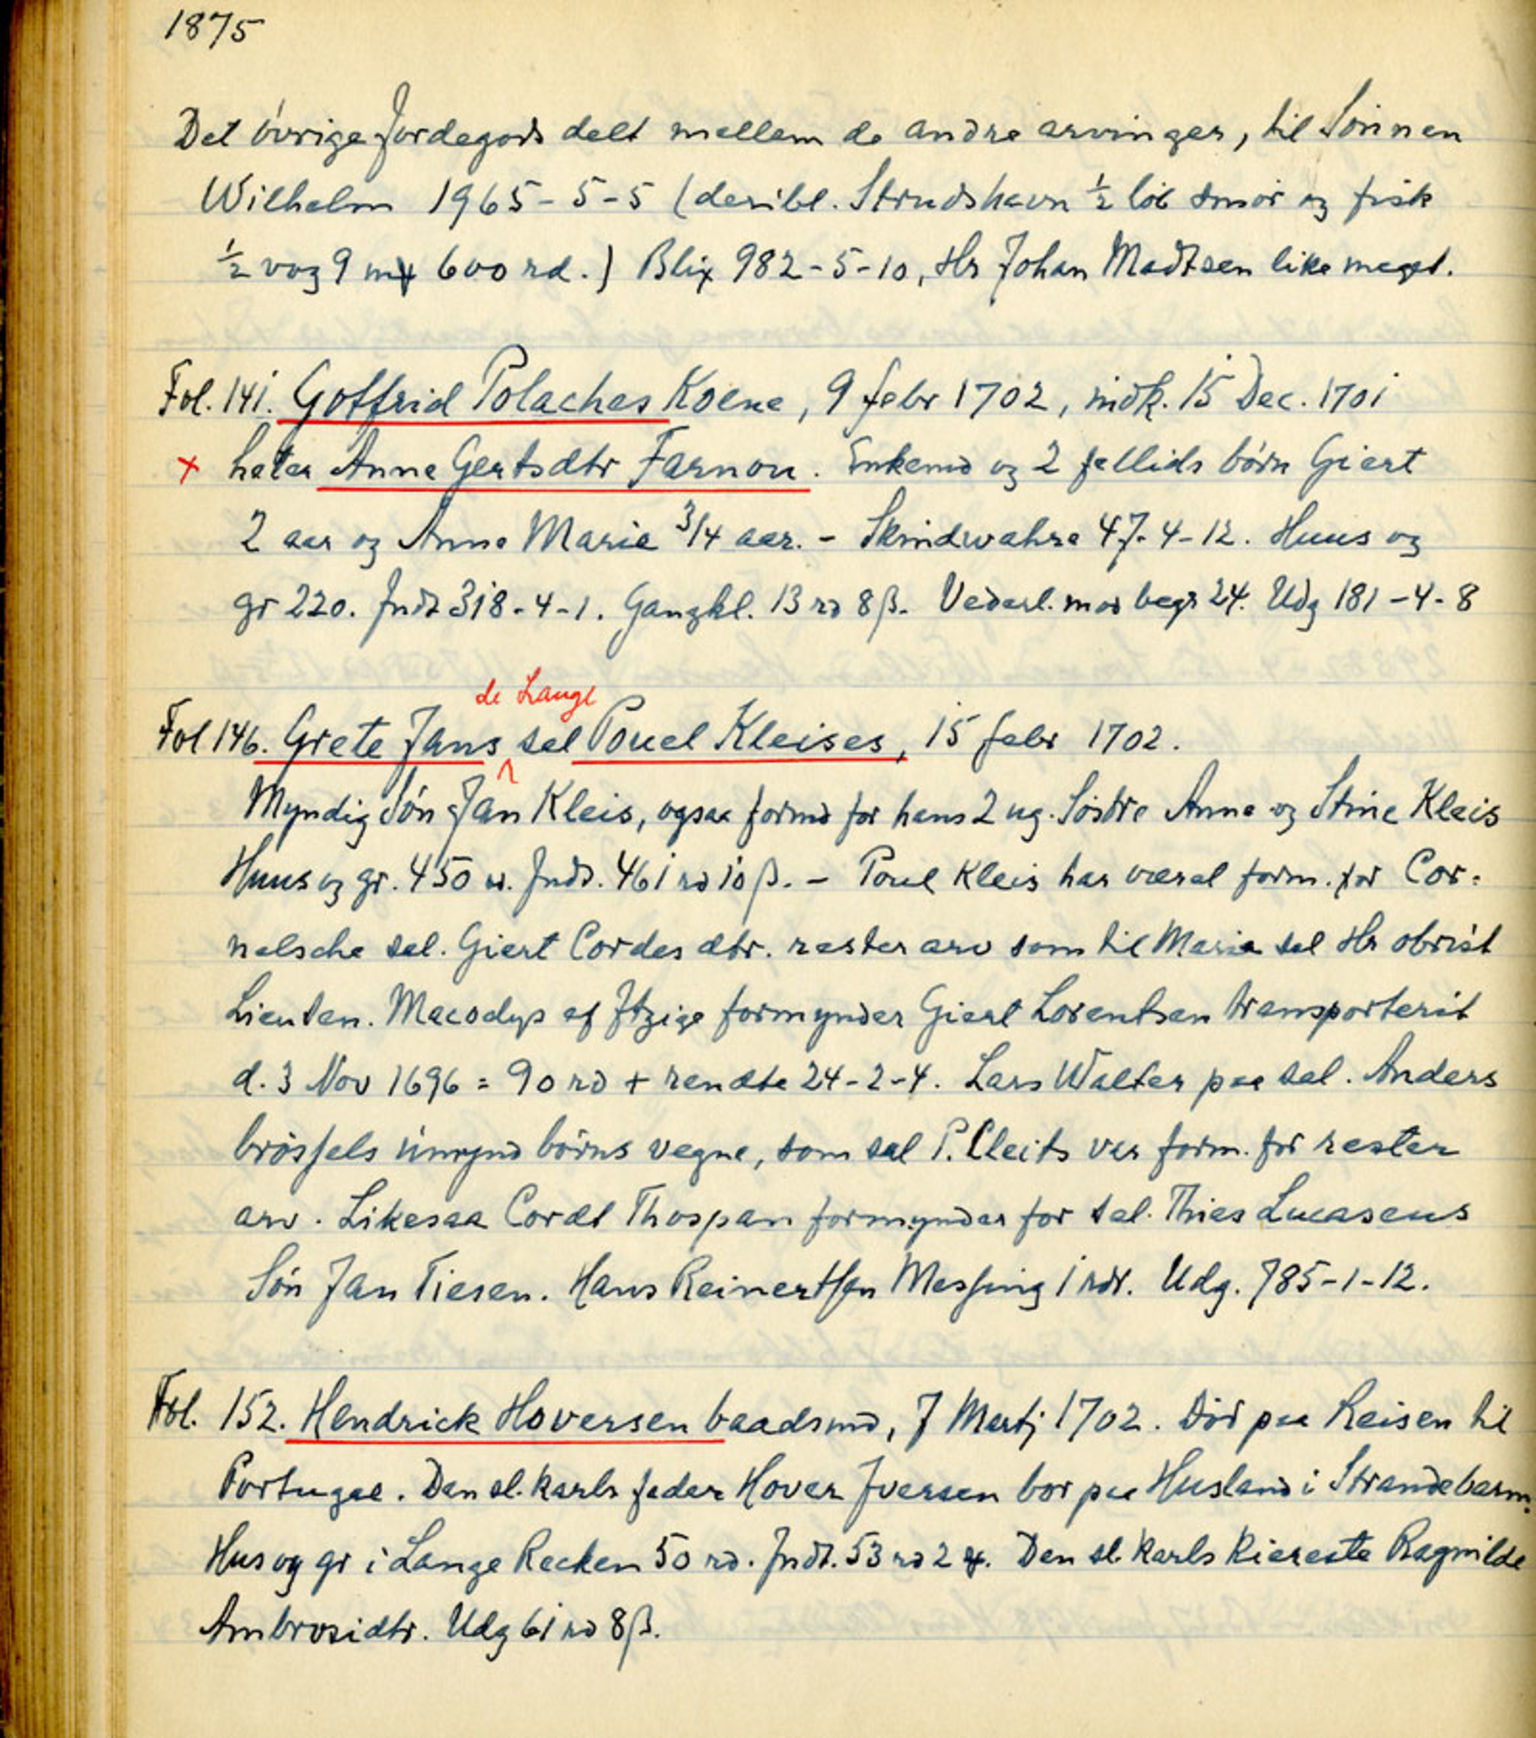 1875
Det övrige Jordegods delt mellem de andre arvinger, til Sönnen
Wilhelm 1965-5-5 (deribl. Strudshavn ½ löb smör og fisk
½ vog 9 mk 600 rd.) Blix 982-5-10, Hr Johan Madtsen like meget.
Fol. 141. Gottfrid Polaches Koene, 9 febr 1702, indk. 15 Dec. 1701
x heter Anne Gertsdtr Farnou. Enkemd og 2 fellids börn Giert
2 aar og Anne Marie 3/4 aar. - Skindwahre 47-4-12. Huus og
gr 220. Indt 318-4-1. Gangkl. 13 rd 8 ß. Vederl. mod begr 24. Udg 181-4-8
de Lange
Fol 146. Grete Jans sel Pouel Kleises, 15 febr 1702.
Myndig Sön Jan Kleis, ogsaa formd for hans 2 ug. Söstre Anne og Stine Kleis
Huus og gr. 450 rd. Indt. 461 rd 10 ß. - Poul Kleis har været form. for Cor-
nelsche sal. Giert Cordes dtr. rester arv som til Maria sal Hr obrist
Lieuten. Macodys af Itzige formynder Giert Lorentsen transporterit
d. 3 Nov 1696 = 90 rd + rendte 24-2-4. Lars Walter paa sal. Anders
brössels umynd börns vegne, som sal P. Cleits var form. for rester
arv. Likesaa Cordt Thospan formynder for sal. Thies Lucasens
Sön Jan Tiesen. Hans Reinertsen Messing 1 rdr. Udg. 785-1-12.
Fol. 152. Hendrick Hoversen baadsmd, 7 Martj 1702. Död paa Reisen til
Portugal. Den sl. karls fader Hover Iversen bor paa Husland i Strandebarm.
Hus og gr i Lange Recken 50 rd. Indt. 53 rd 2 . Den sl. karls Kiereste Ragnilde
Ambrosidtr. Udg 61 rd 8 ß.